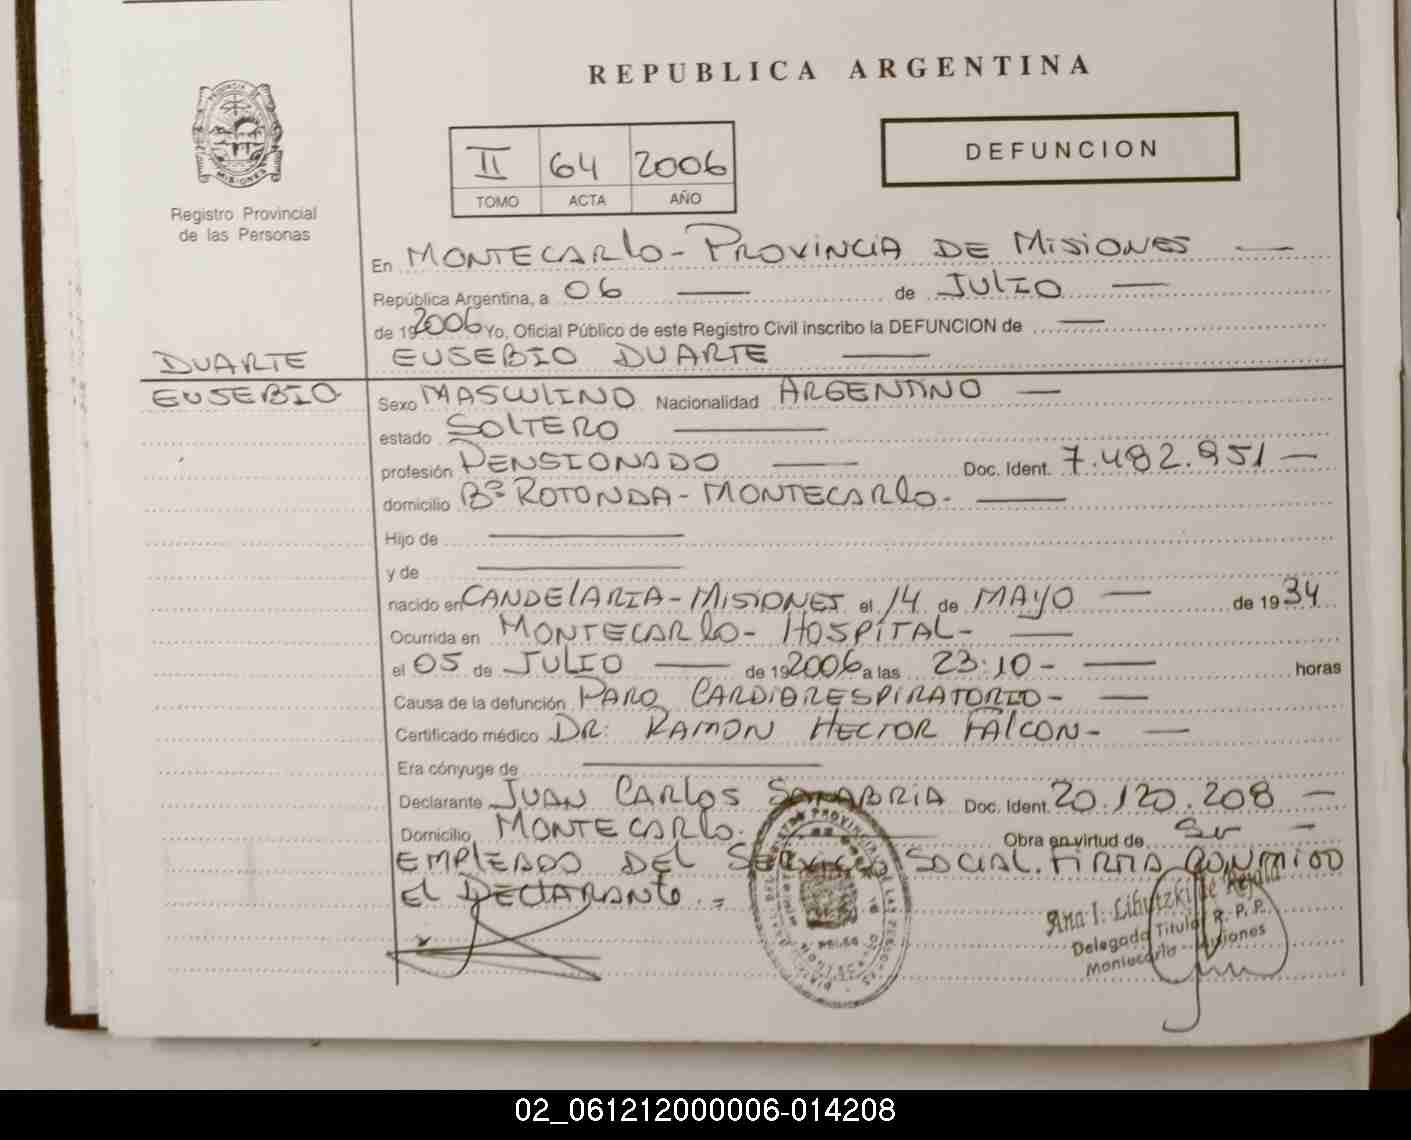 REPUBLICA ARGENTINA
II 64 2006
TOMO ACTA AÑO
DEFUNCION
PROVINCIA
MISIONES
Registro Provincial
de las Personas
En MONTECARLO - PROVINCIA DE MISIONES —
República Argentina, a 06 — de JULIO —
de 19 2006 Yo, Oficial Público de este Registro Civil inscribo la DEFUNCION de —
DUARTE EUSEBIO DUARTE —
EUSEBIO Sexo MASCULINO Nacionalidad ARGENTINO —
estado SOLTERO —
profesión PENSIONADO — Doc. Ident. 7.482.951 —
domicilio Bº ROTONDA - MONTECARLO. —
Hijo de —
y de —
nacido en CANDELARIA - MISIONES el 14 de MAYO — de 19 34
Ocurrida en MONTECARLO - HOSPITAL - —
el 05 de JULIO — de 19 2006 a las 23:10 - — horas
Causa de la defunción PARO CARDIARESPIRATORIO - —
Certificado médico DR: RAMON HECTOR FALCON - —
Era cónyuge de —
Declarante JUAN CARLOS SANABRIA Doc. Ident. 20.120.208 —
Domicilio MONTECARLO. — Obra en virtud de Ser —
EMPLEADO DEL SERVICIO SOCIAL. FIRMA CONMIGO
EL DECLARANTE. =
Ana I. Libutzki de
Delegada Titular R. P. P.
Montecarlo - Misiones
02_061212000006-014208